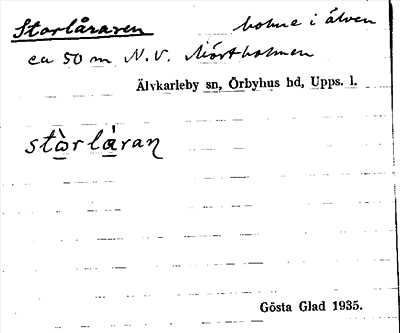 Storlåraren holme i älven
ca 50 m N.V. Mörtholmen
Älvkarleby sn, Örbyhus hd, Upps. l.
stòrláran
Gösta Glad 1935.